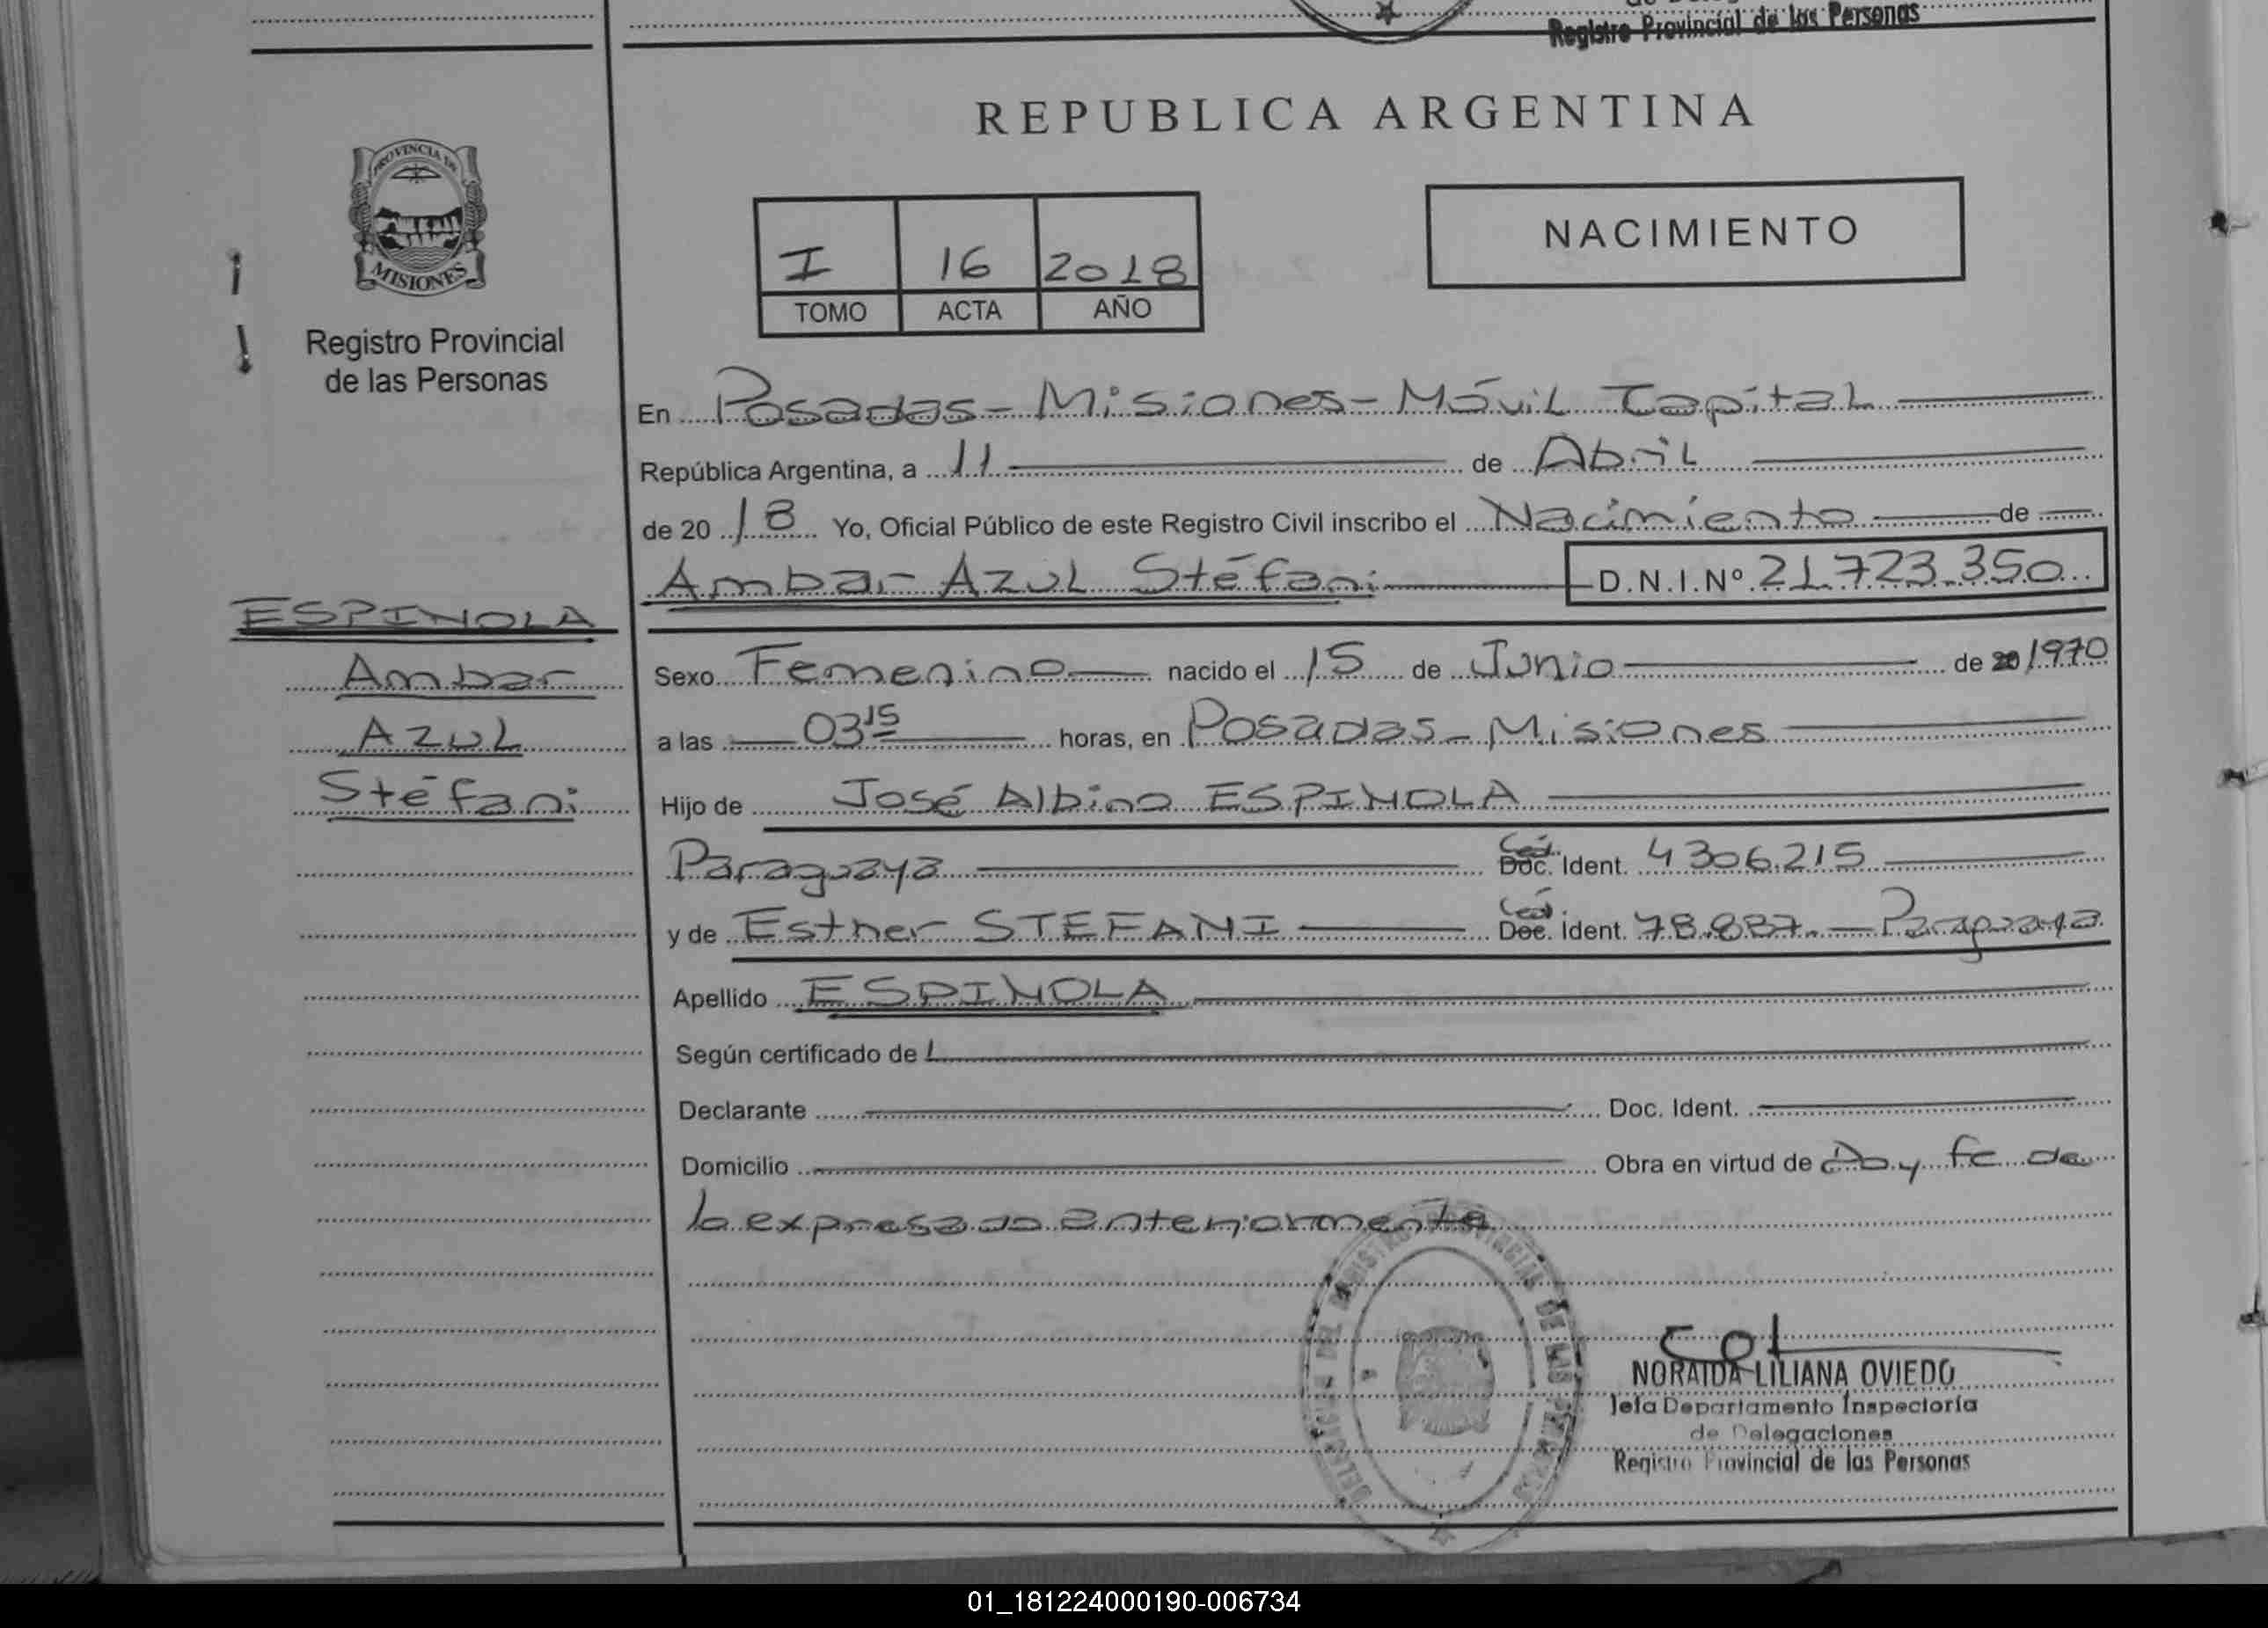 Registro Provincial de las Personas
REPUBLICA ARGENTINA
PROVINCIA DE
MISIONES
Registro Provincial
de las Personas
I 16 2018
TOMO ACTA AÑO
NACIMIENTO
En Posadas - Misiones - Móvil Capital
República Argentina, a 11 de Abril
de 2018 Yo, Oficial Público de este Registro Civil inscribo el Nacimiento de
Ambar Azul Stéfani D.N.I.Nº 21.723.350
ESPINOLA
Ambar
Azul
Stéfani
Sexo Femenino nacido el 15 de Junio de 20 1970
a las 03 15 horas, en Posadas - Misiones
Hijo de José Albino ESPINOLA
Paraguaya Céd. Doc. Ident. 4306.215
y de Esther STEFANI Céd. Doc. Ident. 78.887. - Paraguaya
Apellido ESPINOLA
Según certificado de
Declarante Doc. Ident.
Domicilio Obra en virtud de Doy fe de
lo expresado anteriormente
DEL REGISTRO PROVINCIAL DE LAS PERSONAS
NORAIDA LILIANA OVIEDO
Jefa Departamento Inspectoría
de Delegaciones
Registro Provincial de las Personas
01_181224000190-006734